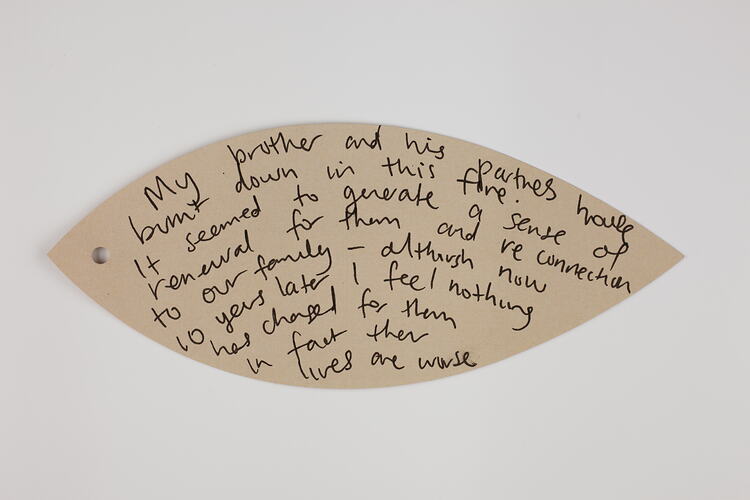 My brother and his partners house
burnt down in this fire.
It seemed to generate a sense of
renewal for them and re connection
to our family - although now
10 years later I feel nothing
has chaged for them
in fact ther
lives are worse